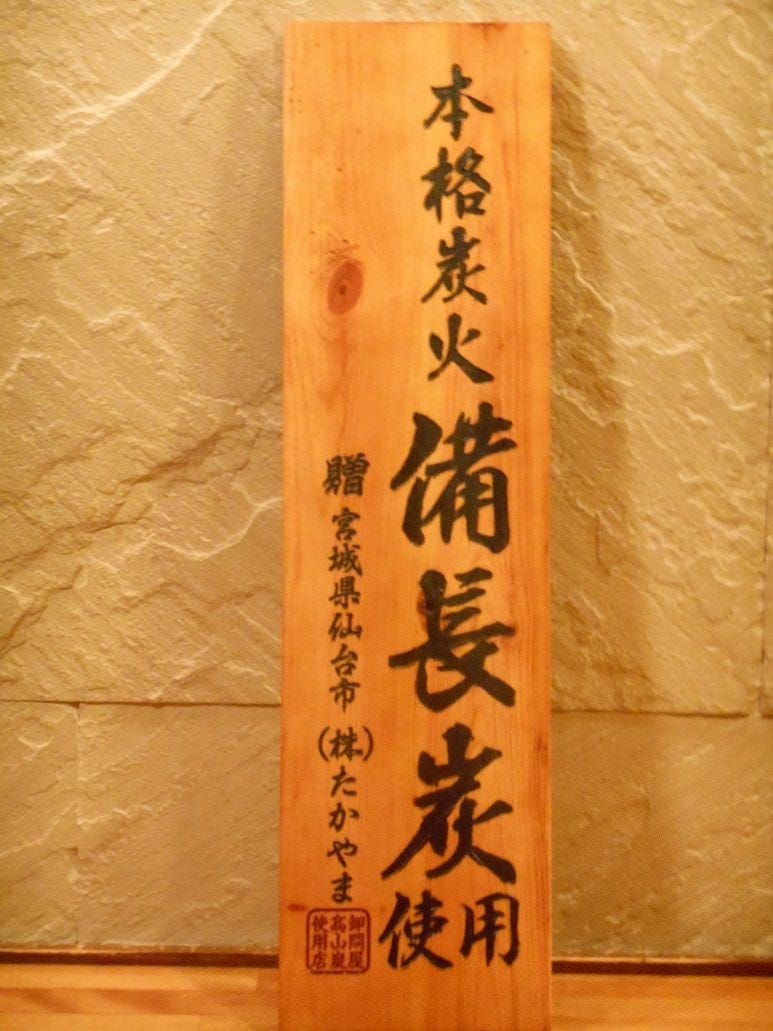 本格炭火備長炭使用
贈 宮城県仙台市 (株)たかやま
卸問屋
高山炭
使用店